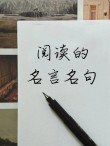 阅读的
名言名句